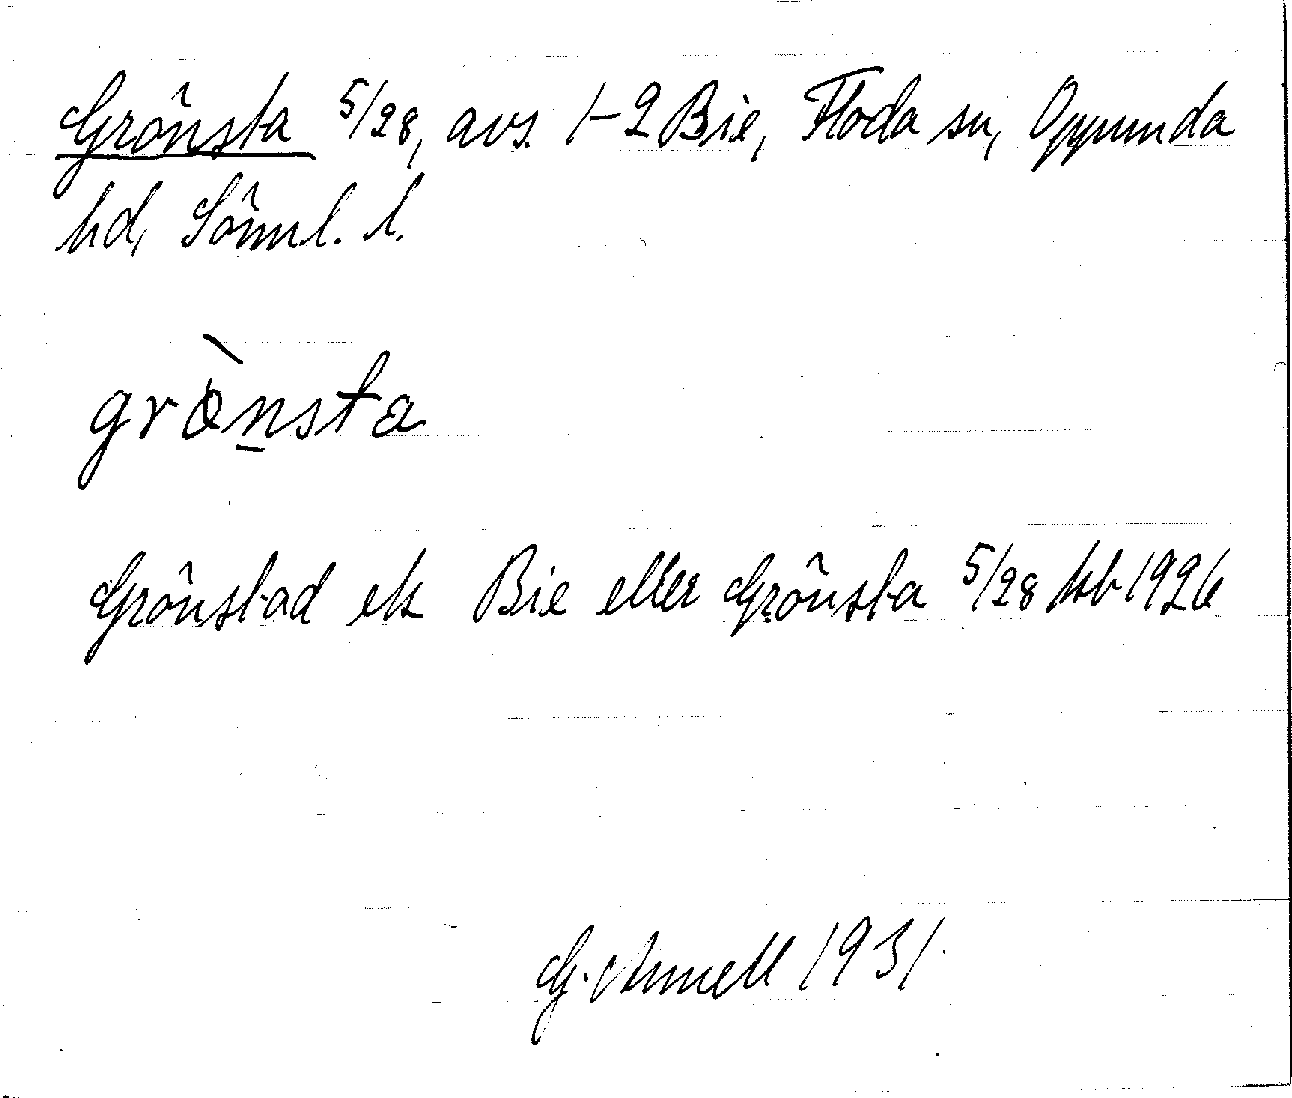 Grönsta 5/28, avs. 1-2 Bie, Floda sn, Oppunda
hd, Sörml. l.
grö̀n̠sta
Grönstad ek Bie eller Grönsta 5/28 Jsb 1926
G. Amnell 1931.